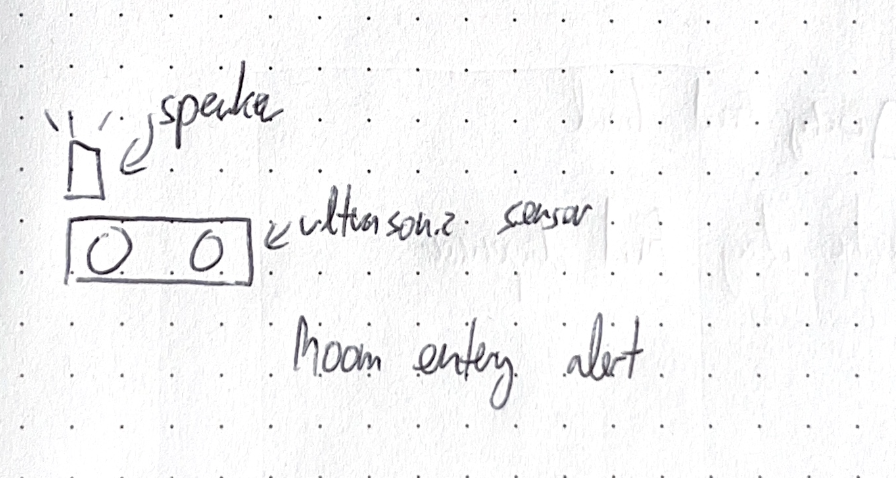 speaker
ultrasonic sensor
Room entry alert